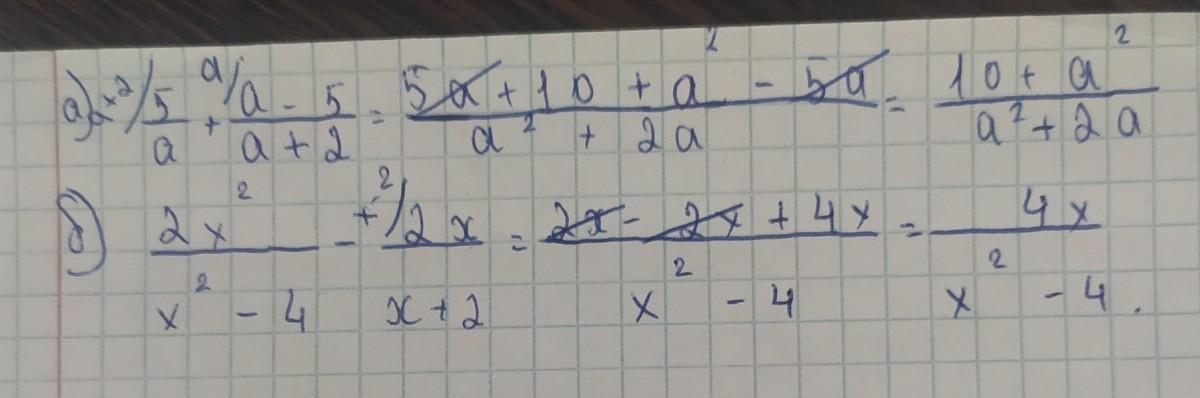 а) а+2/ 5/a + a/ (a - 5)/(a + 2) = (5a + 10 + a² - 5a)/(a² + 2a) = (10 + a²)/(a² + 2a)
б) 2x²/(x² - 4) - +²/ 2x/(x + 2) = (2x - 2x + 4x)/(x² - 4) = 4x/(x² - 4).